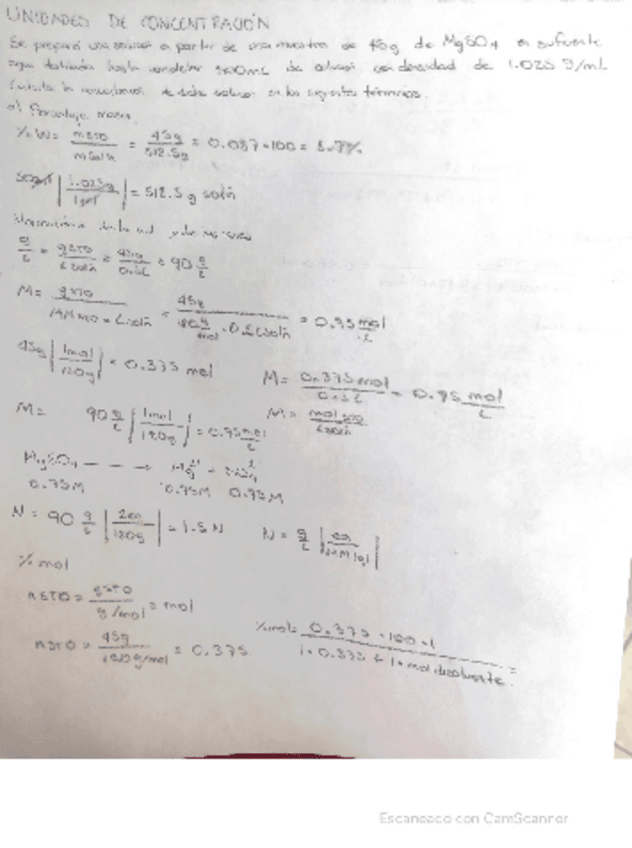 UNIDADES DE CONCENTRACIÓN
Se preparó una solución a partir de una muestra de 45g de MgSO4 en suficiente
agua destilada hasta completar 500mL de solución con densidad de 1.025 g/mL
Calcula la concentración de dicha solución en los siguientes términos.
a) Porcentaje masa
%W = msto / msoln = 45g / 512.5g = 0.087 * 100 = 8.7%
| 1.025g / 1ml | = 512.5 g soln
g/L = gsto / Lsoln = 45g / 0.5L = 90 g/L
M = gsto / = 45g / 120 g/mol . 0.5Lsoln = 0.75 mol/L
45g | 1mol / 120g | = 0.375 mol
M = 0.375 mol / 0.5L = 0.75 mol/L
M = 90 g/L | 1mol / 120g | = 0.75 mol/L
M = mol sto / Lsoln
MgSO4
0.75M 0.75M 0.75M
N = 90 g/L | 2eq / 120g | = 1.5 N
N = g/L
% mol
nSTO = gSTO / g/mol = mol
nSTO = 45g / 120 g/mol = 0.375
%mol = 0.375 * 100 * 1 / 1 * 0.375 + 1 * mol disolvente =
Escaneado con CamScanner